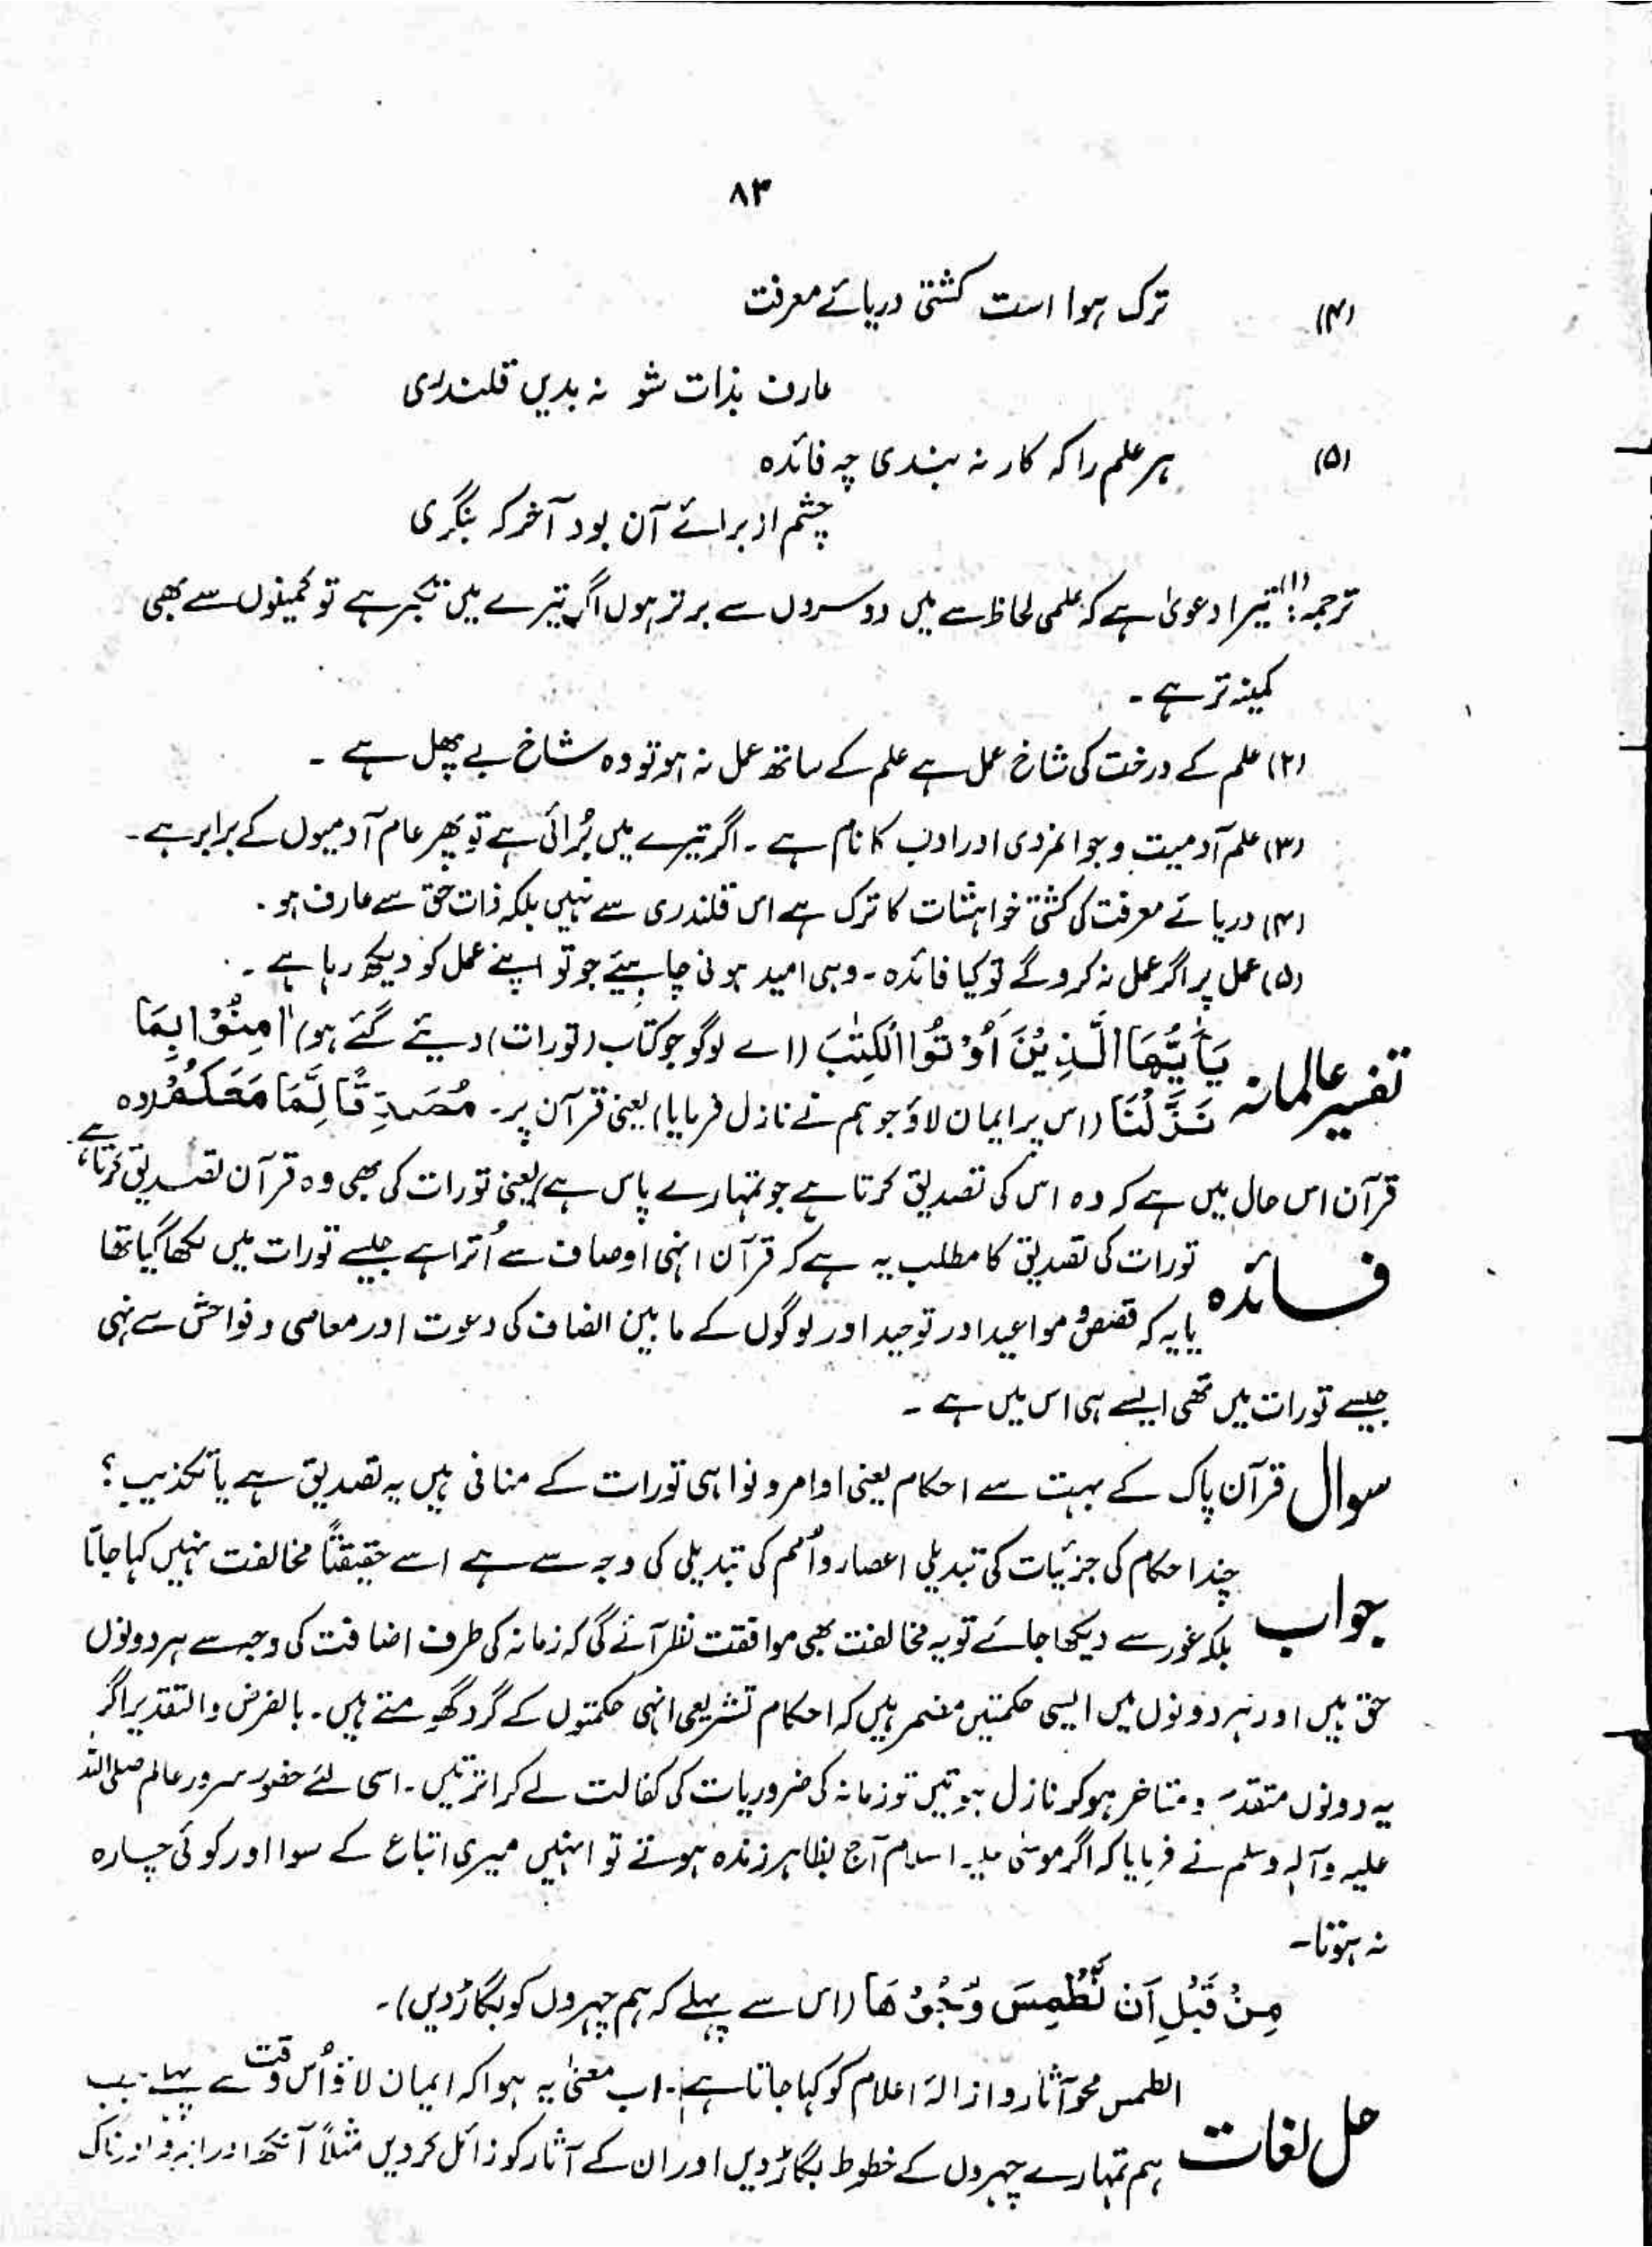 ۸۳
(۴) ترک ہوا است کشتئ دریائے معرفت
عارف بذات شو نہ بدیں قلندری
(۵) ہر علم را کہ کار نہ بندی چہ فائدہ
چشم از برائے آن بود آخر کہ بنگری
ترجمہ: (۱) تیرا دعویٰ ہے کہ علمی لحاظ سے میں دوسروں سے برتر ہوں اگر تیرے میں تکبر ہے تو کمینوں سے بھی
کمینہ تر ہے ۔
(۲) علم کے درخت کی شاخ عمل ہے علم کے ساتھ عمل نہ ہو تو وہ شاخ بے پھل ہے ۔
(۳) علم آدمیت و جوانمردی اور ادب کا نام ہے ۔ اگر تیرے میں بُرائی ہے تو پھر عام آدمیوں کے برابر ہے ۔
(۴) دریائے معرفت کی کشتی خواہشات کا ترک ہے اس قلندری سے نہیں بلکہ ذات حق سے عارف ہو ۔
(۵) عمل پر اگر عمل نہ کروگے تو کیا فائدہ ۔ وہی امید ہونی چاہیئے جو تو اپنے عمل کو دیکھ رہا ہے ۔
تفسیر عالمانہ یٰۤاَیُّهَا الَّذِیْنَ اُوْتُوا الْكِتٰبَ (اے لوگو جو کتاب (تورات) دیئے گئے ہو) اٰمِنُوْا بِمَا
نَزَّلْنَا (اس پر ایمان لاؤ جو ہم نے نازل فرمایا) یعنی قرآن پر ۔ مُصَدِّقًا لِّمَا مَعَكُمْ (وہ
قرآن اس حال میں ہے کہ وہ اس کی تصدیق کرتا ہے جو تمہارے پاس ہے) یعنی تورات کی بھی وہ قرآن تصدیق کرتا ہے ۔
فائدہ تورات کی تصدیق کا مطلب یہ ہے کہ قرآن انہی اوصاف سے اُترا ہے جیسے تورات میں لکھا گیا تھا
یا یہ کہ قصص و مواعید اور توحید اور لوگوں کے مابین انصاف کی دعوت اور معاصی و فواحش سے نہی
جیسے تورات میں تھی ایسے ہی اس میں ہے ۔
سوال قرآن پاک کے بہت سے احکام یعنی اوامر و نواہی تورات کے منافی ہیں یہ تصدیق ہے یا تکذیب ؟
جواب چند احکام کی جزئیات کی تبدیلی اعصار و اُمم کی تبدیلی کی وجہ سے ہے اسے حقیقتاً مخالفت نہیں کہا جاتا
بلکہ غور سے دیکھا جائے تو یہ مخالفت بھی موافقت نظر آئے گی کہ زمانہ کی طرف اضافت کی وجہ سے ہر دونوں
حق ہیں اور ہر دونوں میں ایسی حکمتیں مضمر ہیں کہ احکام تشریعی انہی حکمتوں کے گرد گھومتے ہیں ۔ بالفرض والتقدیر اگر
یہ دونوں متقدم و متاخر ہو کر نازل ہوتیں تو زمانہ کی ضروریات کی کفالت لے کر اترتیں ۔ اسی لئے حضور سرور عالم صلی اللہ
علیہ وآلہ وسلم نے فرمایا کہ اگر موسیٰ علیہ السلام آج بظاہر زندہ ہوتے تو انہیں میری اتباع کے سوا اور کوئی چارہ
نہ ہوتا ۔
مِنْ قَبْلِ اَنْ نَّطْمِسَ وُجُوْهًا (اس سے پہلے کہ ہم چہروں کو بگاڑ دیں) ۔
حل لغات الطمس محو آثار و ازالۃ اعلام کو کہا جاتا ہے ۔ اب معنیٰ یہ ہوا کہ ایمان لاؤ اُس وقت سے پہلے جب
ہم تمہارے چہروں کے خطوط بگاڑ دیں اور ان کے آثار کو زائل کر دیں مثلاً آنکھ اور ابرو اور ناک